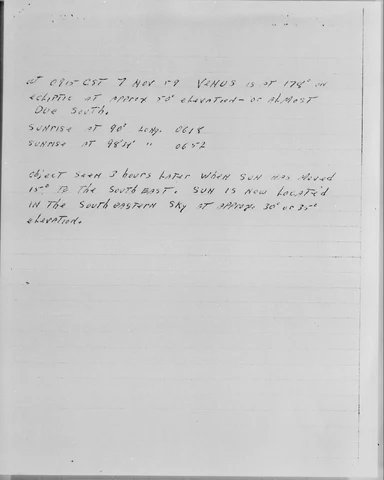 AT 0915 CST 7 NOV 59 VENUS IS AT 178° ON
ECLIPTIC AT APPROX 50° ELEVATION - OR ALMOST
DUE SOUTH.
SUNRISE AT 90° LONG. 0618
SUNRISE AT 98°4' " 0652
OBJECT SEEN 3 HOURS LATER WHEN SUN HAS MOVED
15° TO THE SOUTH EAST. SUN IS NOW LOCATED
IN THE SOUTHEASTERN SKY AT APPROX. 30° OR 35°
ELEVATION.